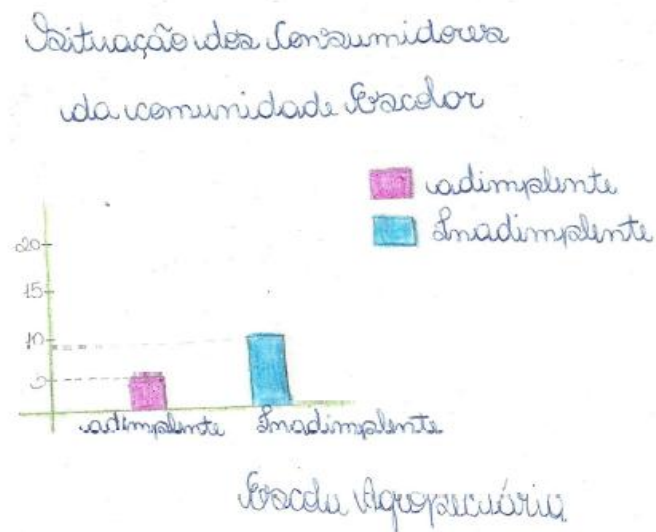 Situação dos Consumidores
da comunidade Escolar
adimplente
Inadimplente
20
15
10
5
adimplente Inadimplente
Escola Agropecuária